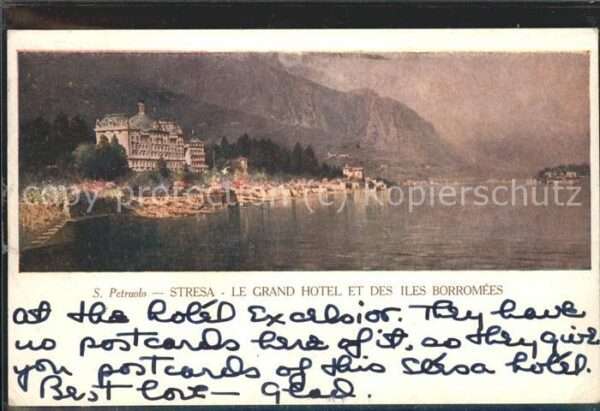 copy protection © Kopierschutz
S. Petruolo — STRESA - LE GRAND HOTEL ET DES ILES BORROMÉES
at the hotel Excelsior. They have
no postcards here of it, so they give
you postcards of this Stresa hotel.
Best love — Glad.